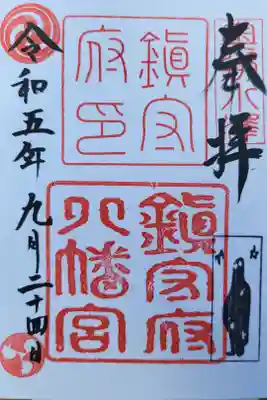 奉拝
鎭守
府印
鎭守府
八幡宮
令和五年九月二十四日